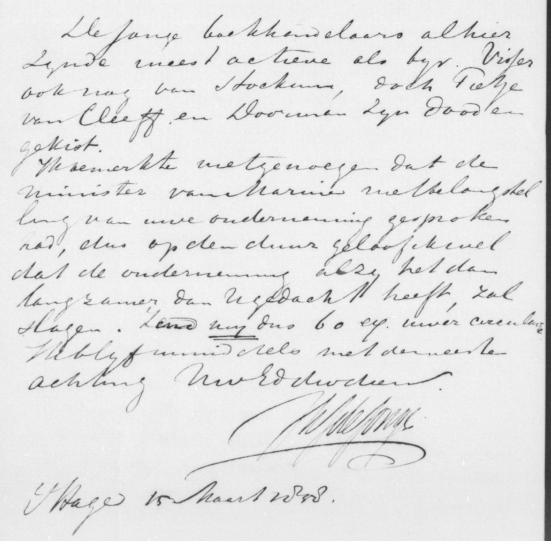 De jonge boekhandelaars alhier
zynde meest actieve als byv. Visser
ook nog van Stockum, doch Fietje
van Cleeff en Doorman zyn dood en
gekist.
Ik bemerkte met genoegen dat de
minister van Marine met belangstel
ling van uwe onderneming gesproken
had, dus op den duur geloof ik wel
dat de onderneming al zy het dan
langzamer dan U gedacht heeft, zal
slagen. Zend my dus 60 ex. uwer circulaire
Ik blyf inmiddels met de meeste
achting UwEd dw dien
de Jonge
S'Hage 15 Maart